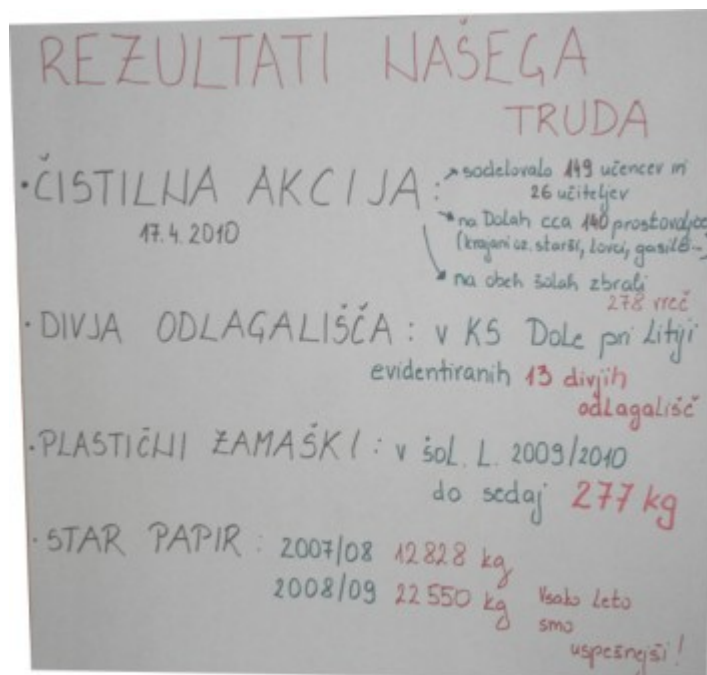 REZULTATI NAŠEGA
TRUDA
• ČISTILNA AKCIJA :
17.4.2010
sodelovalo 149 učencev in
26 učiteljev
na Dolah cca 140 prostovoljcev
(krajani oz. starši, lovci, gasilci...)
na obeh šolah zbrali
278 vreč
• DIVJA ODLAGALIŠČA : v KS Dole pri Litiji
evidentiranih 13 divjih
odlagališč
• PLASTIČNI ZAMAŠKI : v šol. l. 2009/2010
do sedaj 277 kg
• STAR PAPIR : 2007/08 12828 kg
2008/09 22550 kg
Vsako leto
smo
uspešnejši!